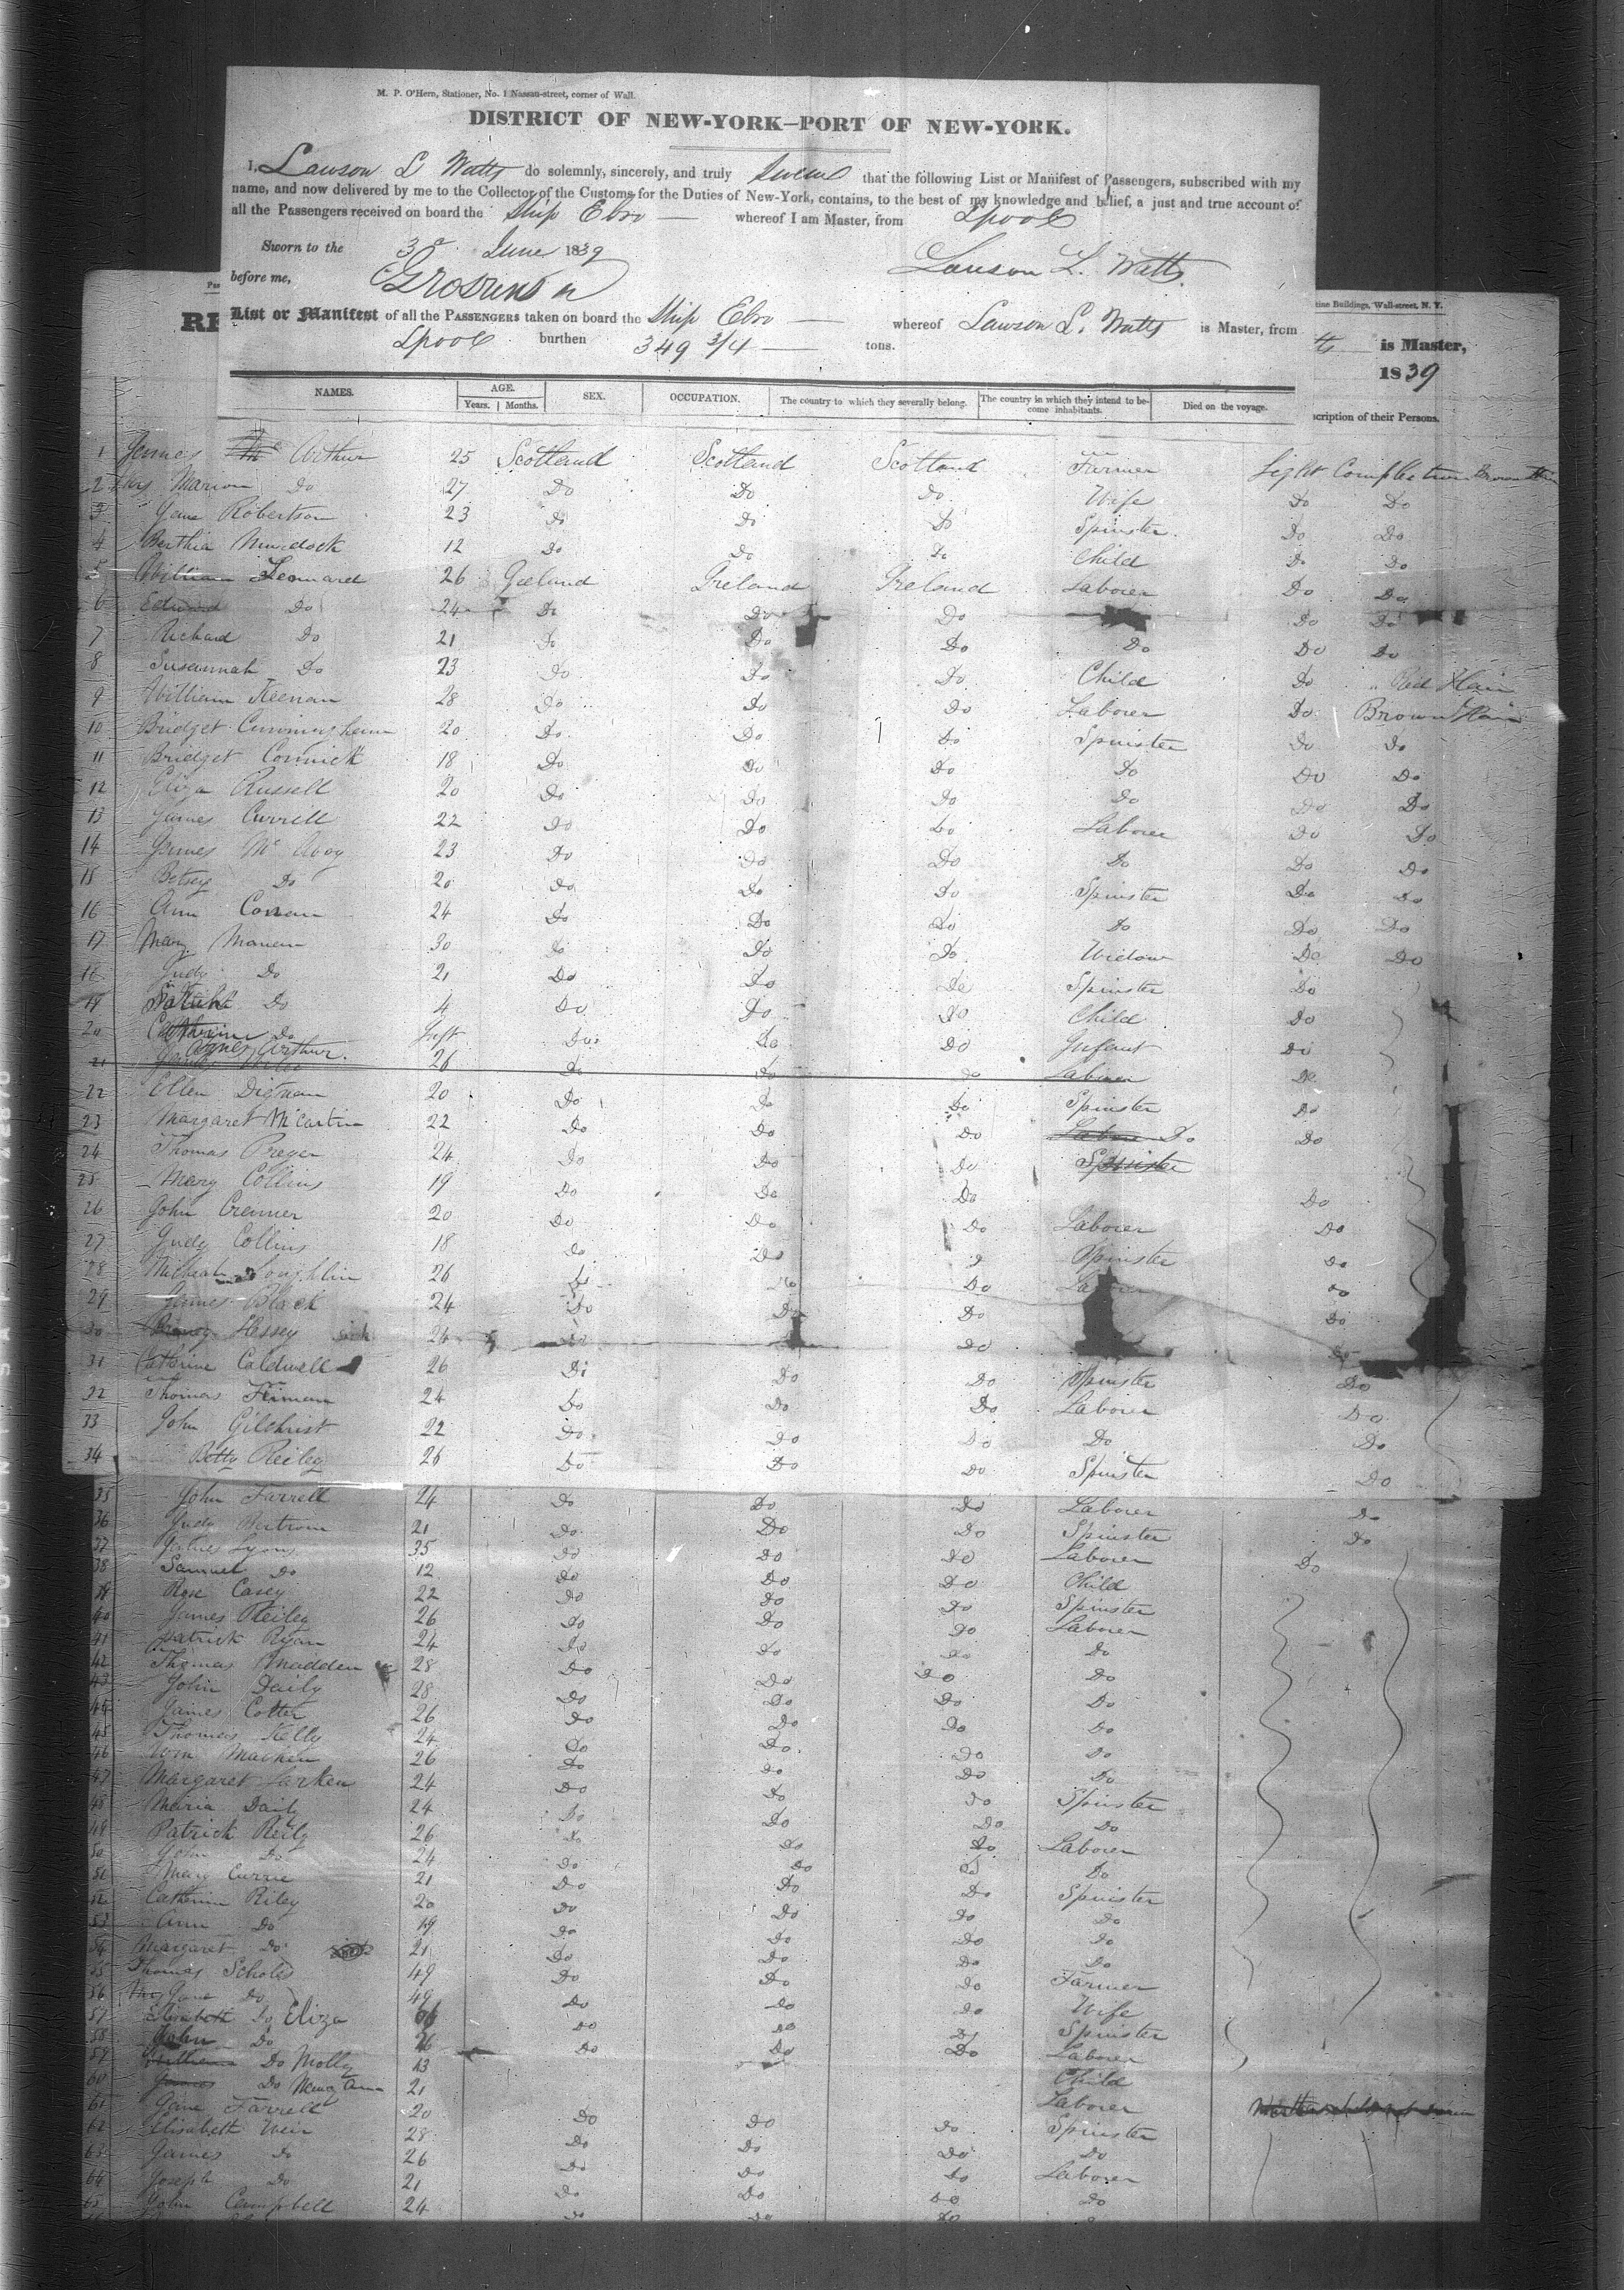 M. P. O'Hern, Stationer, No. 1 Nassau-street, corner of Wall.
DISTRICT OF NEW-YORK—PORT OF NEW-YORK.
I, Lawson L Watts do solemnly, sincerely, and truly swear that the following List or Manifest of Passengers, subscribed with my
name, and now delivered by me to the Collector of the Customs for the Duties of New-York, contains, to the best of my knowledge and belief, a just and true account of
all the Passengers received on board the Ship Ebro whereof I am Master, from Lpool
Sworn to the 3d June 1839
Lawson L. Watts
before me,
List or Manifest of all the PASSENGERS taken on board the Ship Ebro whereof Lawson L. Watts is Master, from
Lpool burthen 349 3/4 tons.
tine Buildings, Wall-street, N. Y.
is Master,
1839
NAMES. AGE. Years. Months. SEX. OCCUPATION. The country to which they severally belong. The country in which they intend to become inhabitants. Died on the voyage.
cription of their Persons.
1 James Arthur 25 Scotland Scotland Scotland Farmer Light Complection Brown Hair
2 Mrs Marion Do 27 Do Do Do Wife Do Do
3 Jane Robertson 23 Do Do Do Spinster. Do Do
4 Murdock 12 Do Do Do Child Do Do
5 William Leonnard 26 Ireland Ireland Ireland Laborer Do Do
6 Edward Do 24 Do Do Do Do Do
7 Richard Do 21 Do Do Do Do Do Do
8 Susannah Do 23 Do Do Do Child Do Red Hair
9 William Keenan 28 Do Do Do Laborer Do Brown Hair
10 Bridget Cunningham 20 Do Do Do Spinster Do Do
11 Bridget Cormick 18 Do Do Do Do Do Do
12 Eliza Russell 20 Do Do Do Do Do Do
13 James Currell 22 Do Do Do Laborer Do Do
14 James Mc Avoy 23 Do Do Do Do Do Do
15 Betsey Do 20 Do Do Do Spinster Do Do
16 Ann 24 Do Do Do Do Do Do
17 Mary 30 Do Do Do Widow Do Do
18 Judy Do 21 Do Do Do Spinster Do
19 Do 4 Do Do Do Child Do
20 Catherine Do Inft Do Do Do Infant Do
Arthur.
21 26 Do Do Do Laborer Do
22 Ellen Dignam 20 Do Do Do Spinster Do
23 Margaret McCartin 22 Do Do Do Do Do
24 Thomas 24 Do Do Do Spinster
25 Mary Collins 19 Do Do Do Do
26 John 20 Do Do Do Laborer Do
27 Judy Collins 18 Do Do Spinster Do
28 Loughlin 26 Do Do Do Do
29 James Black 24 Do Do Do Do
30 Hessey 24 Do Do
31 Cathrine Caldwell 26 Do Do Do Spinster Do
32 Thomas 24 Do Do Do Laborer Do
33 John Gilchrist 22 Do Do Do Do Do
34 Betty Reiley 26 Do Do Do Spinster Do
35 John Farrell 24 Do Do Do Laborer Do
36 Judy 21 Do Do Do Spinster Do
37 James Lyons 35 Do Do Do Laborer Do
38 Samuel Do 12 Do Do Do Child
39 Rose Casey 22 Do Do Do Spinster
40 James Reiley 26 Do Do Do Laborer
41 Patrick Ryan 24 Do Do Do Do
42 Thomas Madden 28 Do Do Do Do
43 John Daily 28 Do Do Do Do
44 James Cotter 26 Do Do Do Do
45 Thomas Kelly 24 Do Do Do Do
46 Wm 26 Do Do Do Do
47 Margaret Larken 24 Do Do Do Spinster
48 Maria Daily 24 Do Do Do Do
49 Patrick Reily 26 Do Do Do Laborer
50 John Do 24 Do Do Do Do
51 Mary Currie 21 Do Do Do Spinster
52 Catherine Riley 20 Do Do Do Do
53 Ann Do 19 Do Do Do Do
54 Margaret Do 21 Do Do Do Do
55 Thomas Scholes 49 Do Do Do Farmer
56 Mrs Jane Do 49 Do Do Do Wife
57 Elisabeth Do Eliza Do Do Do Spinster
58 John Do 26 Do Do Do Laborer
59 William Do Molly 13 Child
60 James Do Mary Ann 21 Laborer
61 Jane Farrell 20 Do Do Do Spinster
62 Elisabeth Weir 28 Do Do Do Do
63 James Do 26 Do Do Do Laborer
64 Joseph Do 21 Do Do Do Do
65 John Campbell 24 Do Do Do